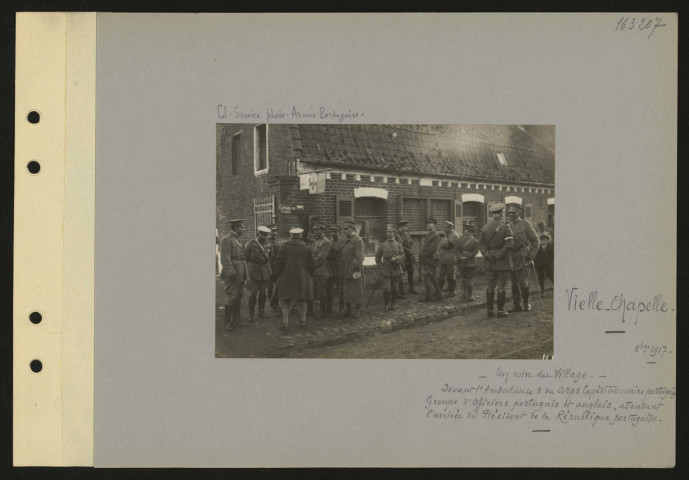 163207
Cl. Service photo. Armée Portugaise.
Vielle-Chapelle.
8bre 1917.
Un coin du Village.
Devant l'Ambulance 3 du Corps Expéditionnaire portugais
Groupe d'Officiers portugais et anglais, attendant
l'arrivée du Président de la République portugaise.